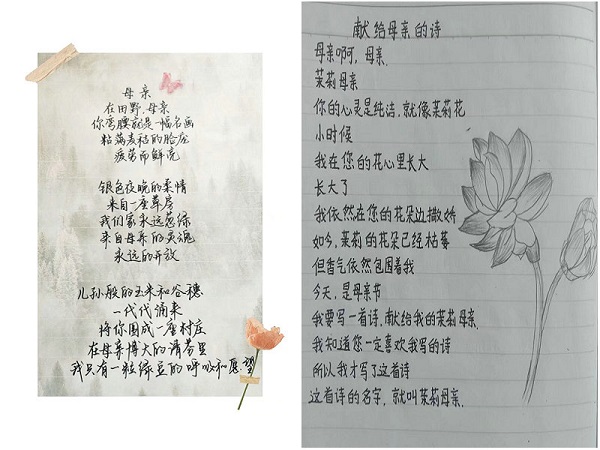 母亲
在田野,母亲
你弯腰就是一幅名画
粘满麦秸的脸庞
疲劳而鲜亮
银色夜晚的柔情
来自一座草房
我们家永远葱绿
来自母亲的灵魂
永远的开放
儿孙般的玉米和谷穗
一代代涌来
将你围成一座村庄
在母亲博大的清芬里
我只有一粒绿豆的呼吸和愿望
献给母亲的诗
母亲啊,母亲.
茉莉母亲
你的心灵是纯洁,就像茉莉花
小时候
我在您的花心里长大
长大了
我依然在您的花朵边撒娇
如今,茉莉的花朵已经枯萎
但香气依然包围着我
今天,是母亲节
我要写一首诗,献给我的茉莉母亲.
我知道您一定喜欢我写的诗
所以我才写了这首诗
这首诗的名字,就叫茉莉母亲.